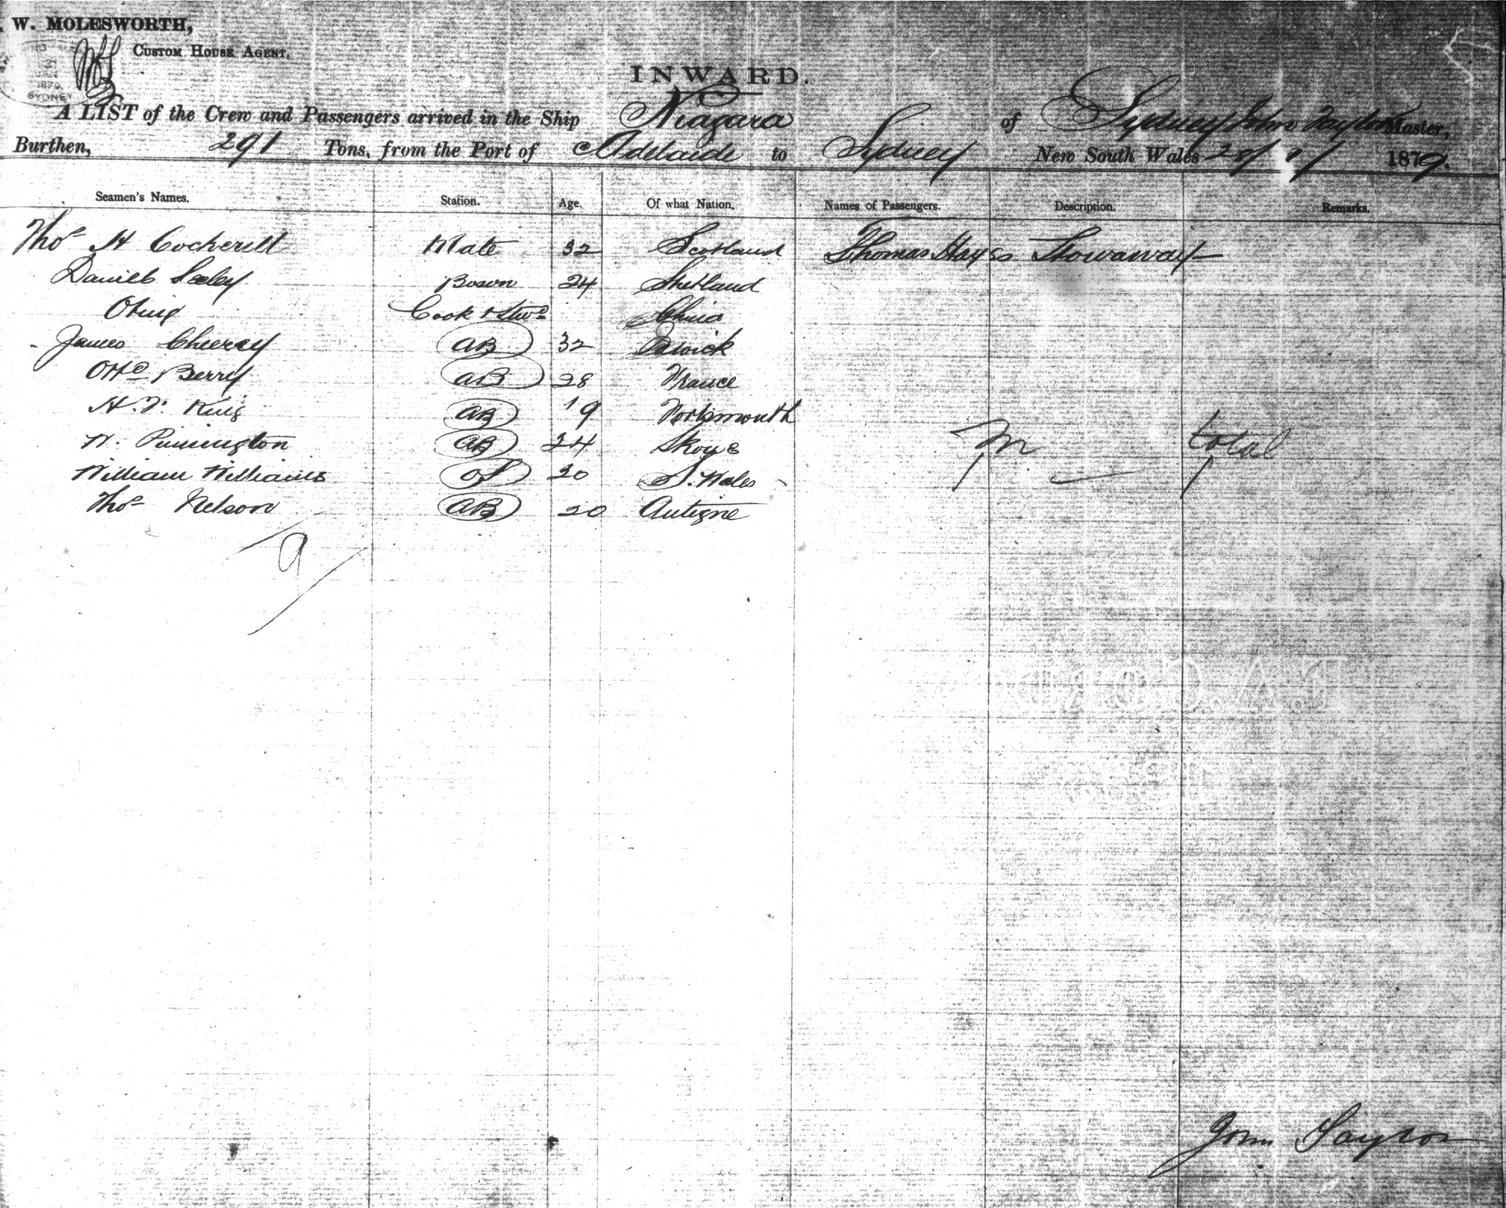 W. MOLESWORTH,
CUSTOM HOUSE AGENT.
1879
SYDNEY
INWARD.
A LIST of the Crew and Passengers arrived in the Ship Niagara of Sydney John Taylor Master,
Burthen, 291 Tons, from the Port of Adelaide to Sydney New South Wales 28/ 1879.
Seamen's Names. Station. Age. Of what Nation. Names of Passengers. Description. Remarks.
Thos H Cockerill Mate 32 Scotland Thomas Hayes Stowaway
Daniel Sealey Bosun 24 Shetland
Cook & Stwd China
James AB 32
Berry AB 28 France
H. King AB 19 Portsmouth
Pennington AB 24 Skye
William Williams OS 20 S. Wales
Thos Nelson AB 20 Antigue
total
9
John Taylor